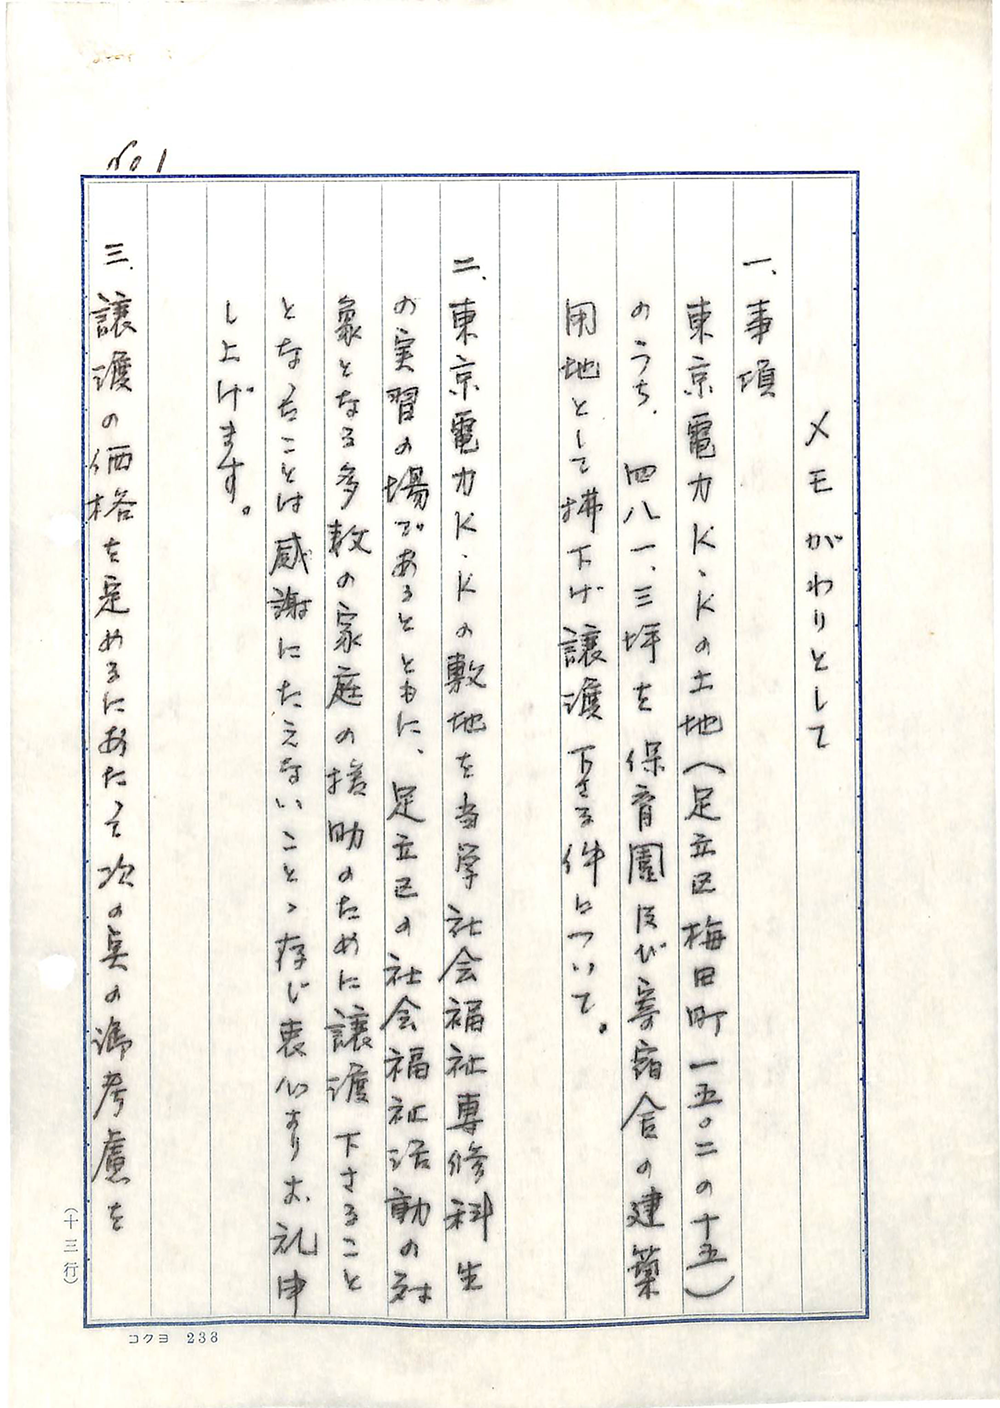 No 1
メモがわりとして
一、事項
東京電力K・Kの土地（足立区梅田町一五〇二の十五）
のうち、四八一、三坪を保育園及び寄宿舎の建築
用地として払下げ譲渡下さる件について。
二、東京電力K・Kの敷地を当学社会福祉専修科生
の実習の場であるとともに、足立区の社会福祉活動の対
象となる多数の家庭の援助のために譲渡下さること
となることは感謝にたえないことゝ存じ衷心よりお礼申
し上げます。
三、譲渡の価格を定めるにあたって次の点の御考慮を
（十三行）
コクヨ 238